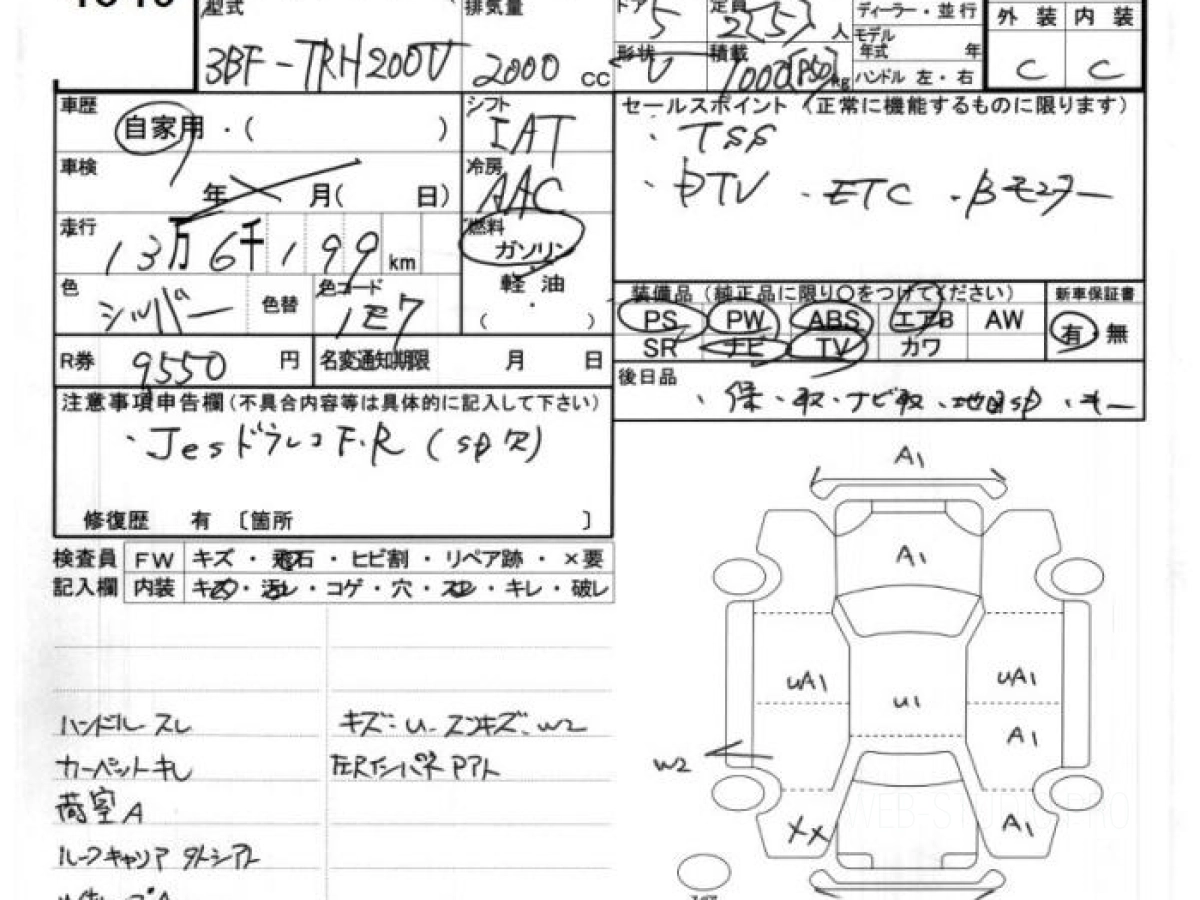 型式 排気量 ドア 5 定員 2(5)人 ディーラー・並行
3BF-TRH200V 2000 cc 形状 V 積載 1000[850]kg モデル年式 年 外装 内装
ハンドル 左・右 C C
車歴 自家用・( ) シフト IAT セールスポイント(正常に機能するものに限ります)
・TSS
車検 年 月( 日) 冷房 AAC ・DTV ・ETC ・Bモニター
走行 13万6千199km 燃料 ガソリン
軽油
( )
色 シルバー 色替 色コード 1E7
装備品(純正品に限り○をつけてください) 新車保証書
PS PW ABS エアB AW 有・無
SR ナビ TV カワ
R券 9550円 名変通知期限 月 日
後日品 ・保・取・ナビ取・地図SD・キー
注意事項申告欄(不具合内容等は具体的に記入して下さい)
・Jesドラレコ F.R (SD欠)
修復歴 有 〔箇所 〕
検査員 FW キズ・飛石・ヒビ割・リペア跡・×要
記入欄 内装 キズ・汚レ・コゲ・穴・スレ・キレ・破レ
ハンドルスレ キズ:U
カーペットキレ
荷室A
ルーフキャリア
A1
A1
UA1 U1 UA1
A1
W2
XX A1
WEB-STUDIO PRO